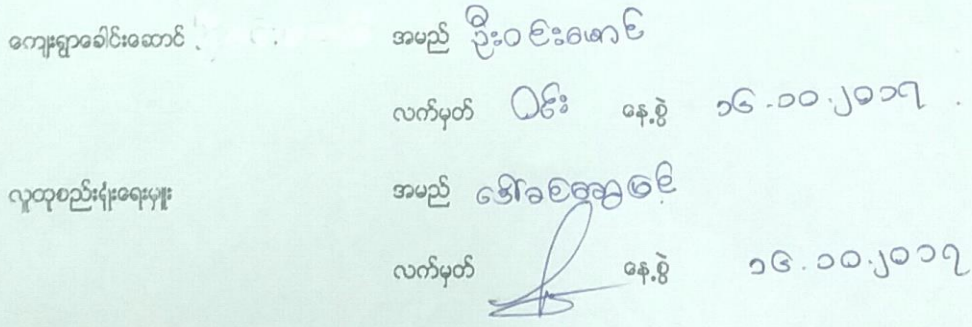 ကျေးရွာခေါင်းဆောင် အမည် ဦးဝင်းမောင်
လက်မှတ် ဝင်း နေ့စွဲ ၁၆.၁၀.၂၀၁၇
လူထုစည်းရုံးရေးမှူး အမည် ဒေါ်ခင်ဆွေမြင့်
လက်မှတ် နေ့စွဲ ၁၆.၁၀.၂၀၁၇